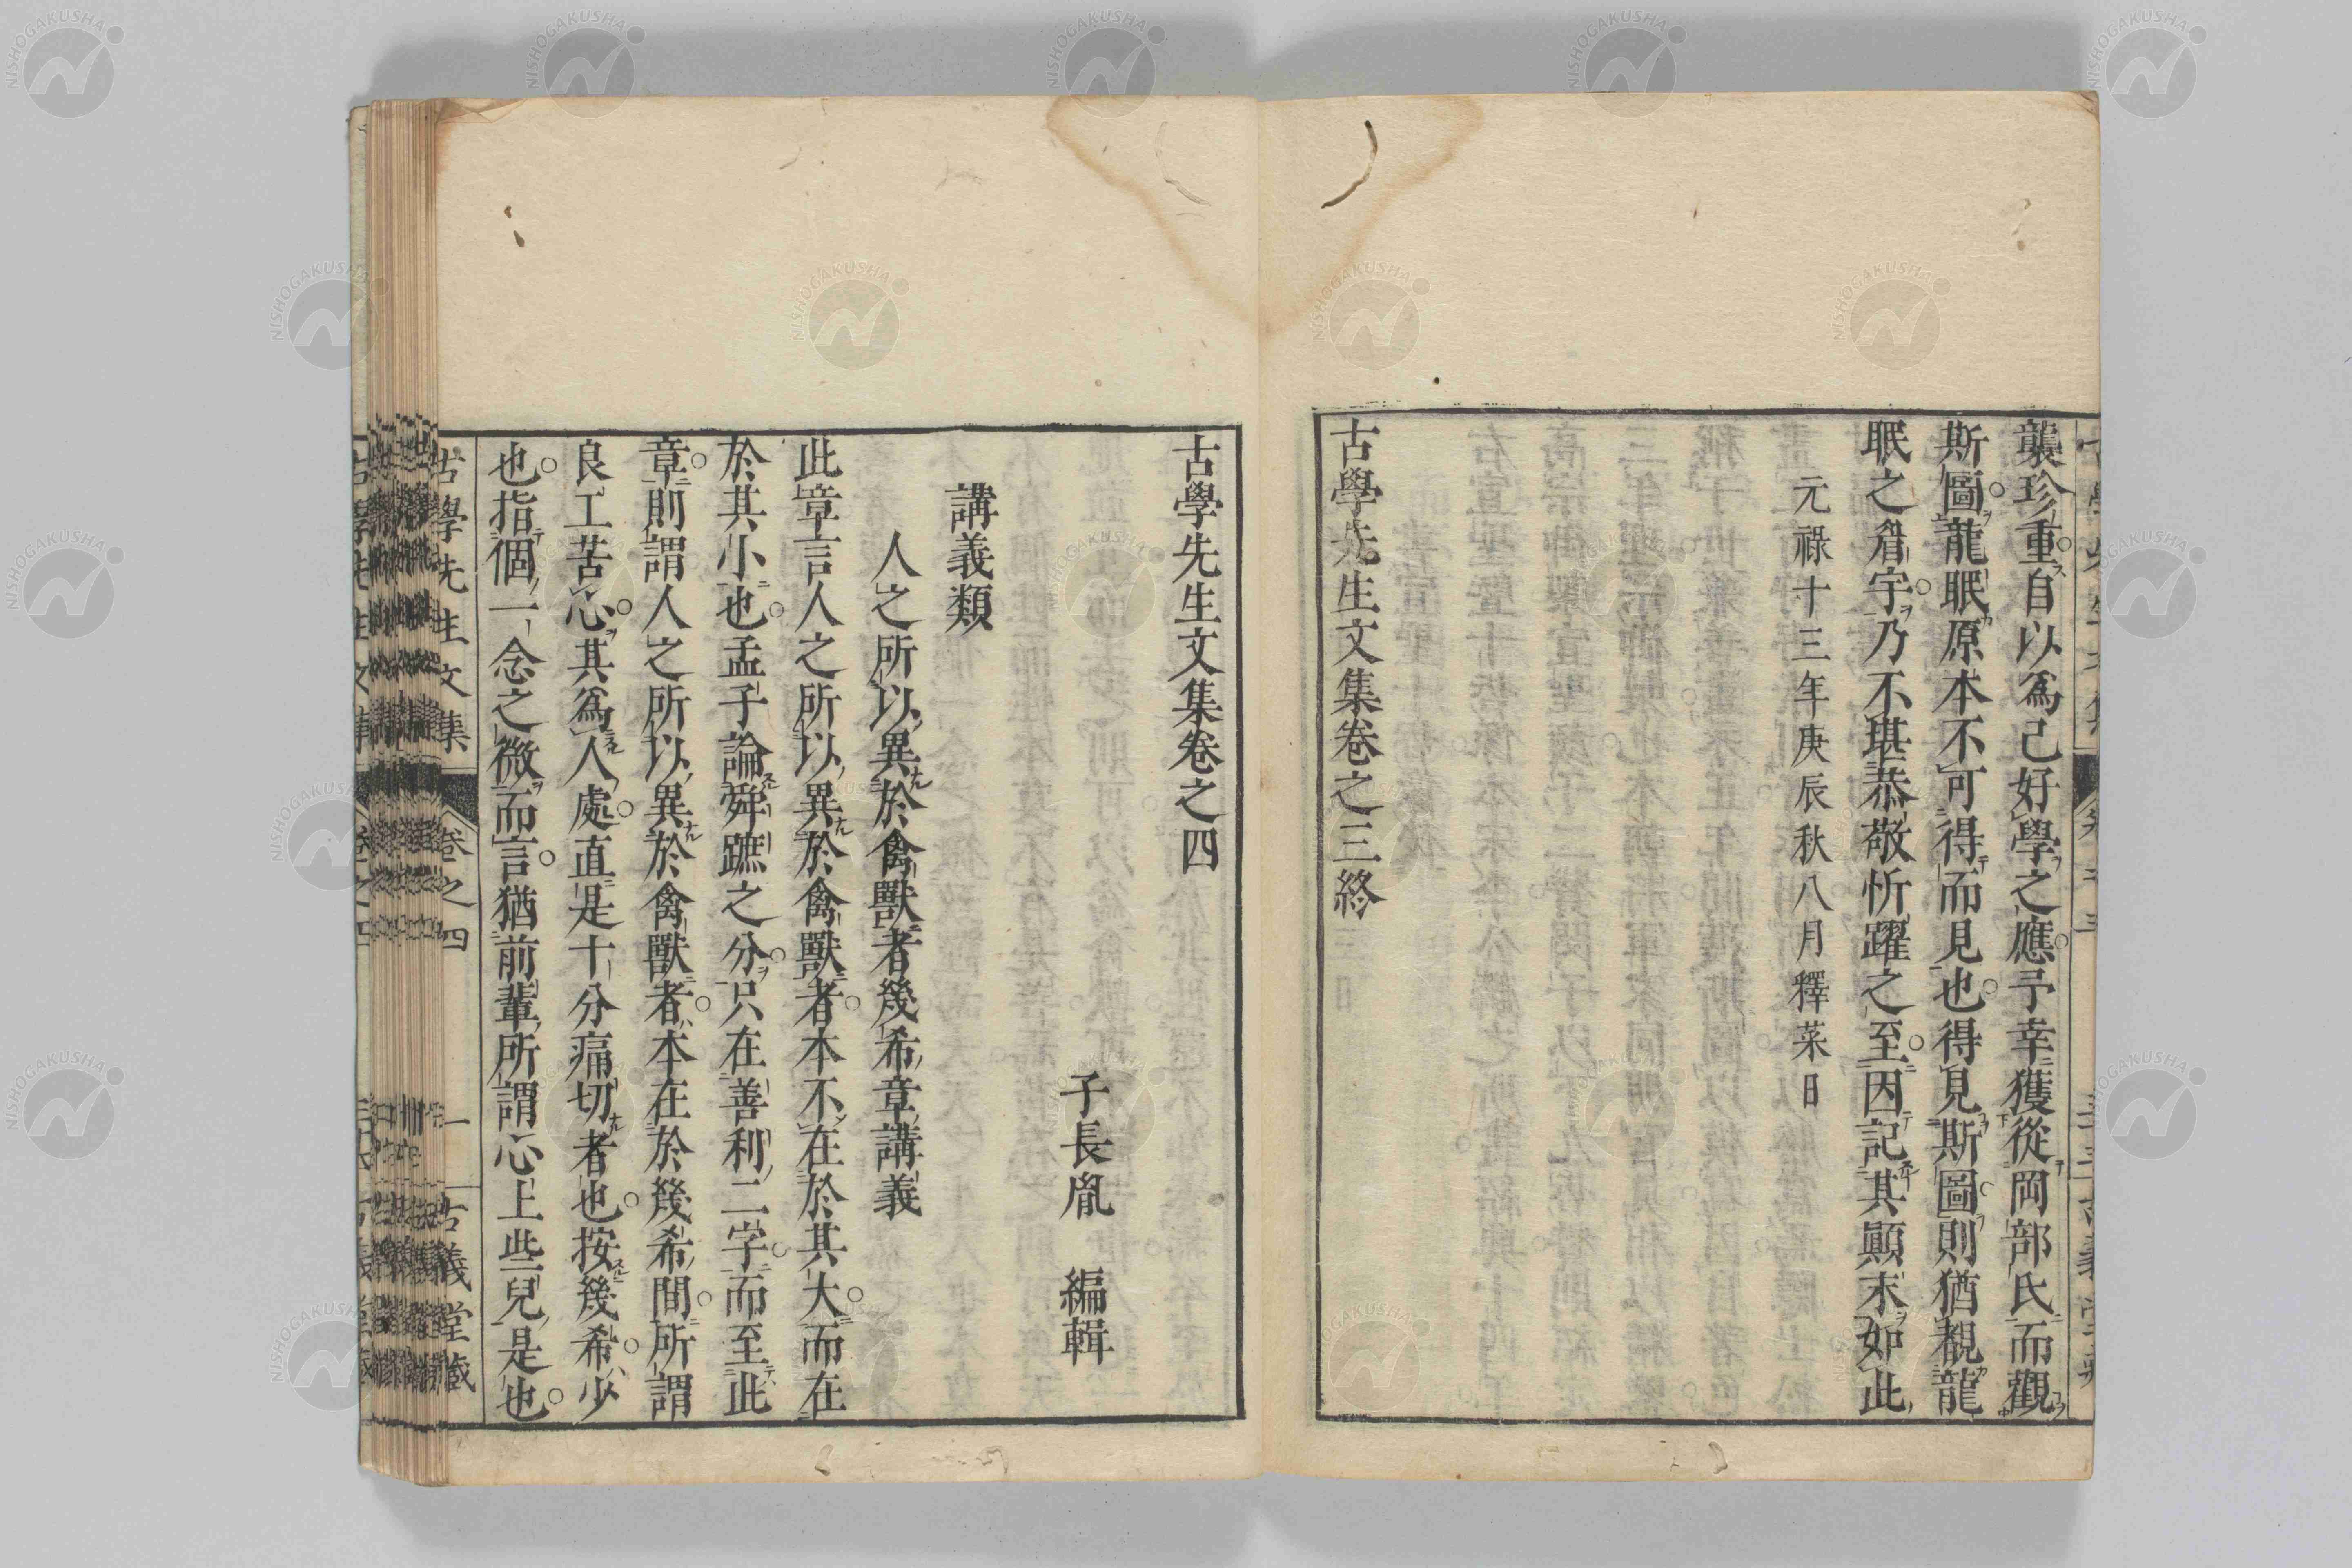 襲珍重自以爲己好學之應予幸獲從岡部氏而觀
斯圖龍眠原本不可得而見也得見斯圖則猶覩龍
眠之眉宇乃不堪恭敬忻躍之至因記其顚末如此
元祿十三年庚辰秋八月釋菜日
古學先生文集卷之三終
古學先生文集卷之四
子長胤 編輯
講義類
人之所以異於禽獸者幾希章講義
此章言人之所以異於禽獸者本不在於其大而在
於其小也孟子論舜蹠之分只在善利二字而至此
章則謂人之所以異於禽獸者本在於幾希間所謂
良工苦心其爲人處直是十分痛切者也按幾希少
也指個一念之微而言猶前輩所謂心上些兒是也
古學先生文集 卷之四 一 古義堂藏
NISHOGAKUSHA